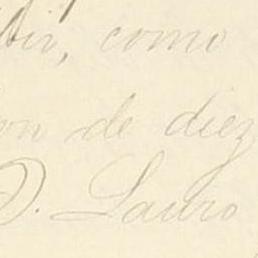 como
de diez
D. Lauro